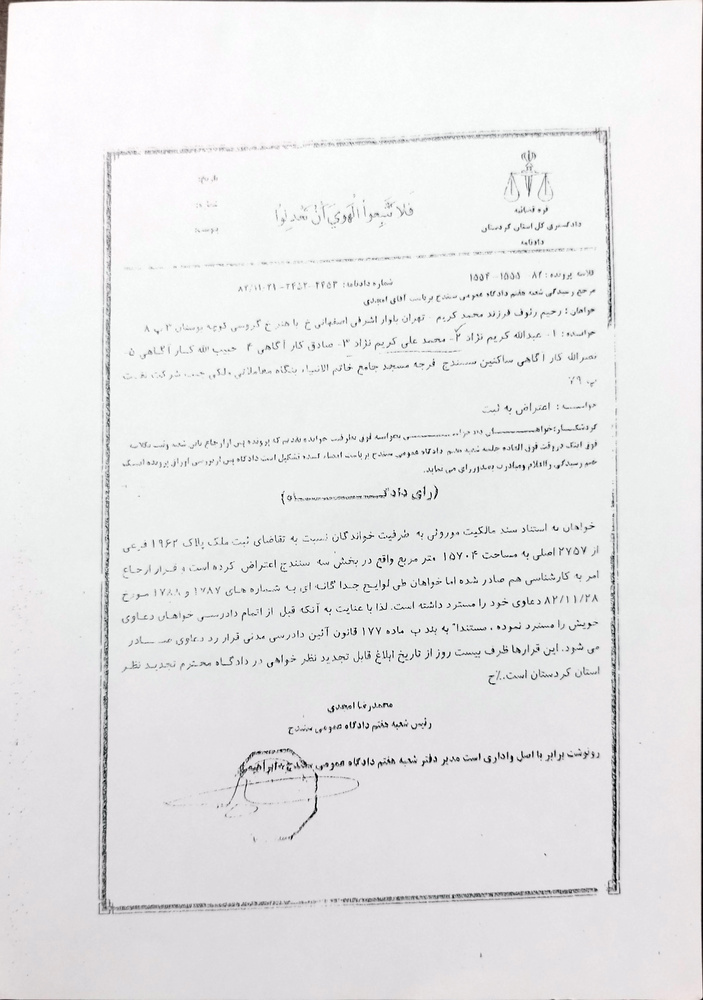 فَلا تَتَّبِعوُا الْهَوي أَنْ تَعْدِلوُا
قوه قضائیه
دادگستری کل استان کردستان
دادنامه
کلاسه پرونده : ۸۲ - ۱۵۵۵ - ۱۵۵۴ شماره دادنامه : ۲۴۵۳ - ۲۴۵۲ - ۸۲/۱۱/۳۱
مرجع رسیدگی شعبه هفتم دادگاه عمومی سنندج بریاست آقای امجدی
خواهان : رحیم رئوف فرزند محمد کریم - تهران بلوار اشرفی اصفهانی خ باهنر خ گروسی کوچه بوستان ۳ پ ۸
خوانده : ۱- عبدالله کریم نژاد ۲- محمد علی کریم نژاد ۳- صادق کار آگاهی ۴ حبیب الله کار آگاهی ۵
نصرالله کار آگاهی ساکنین سنندج فرجه مسجد جامع خاتم الانبیاء بنگاه معاملاتی ملکی جنب شرکت نفت
پ ۷۹
خواسته : اعتراض به ثبت
گردشکار : خواهان دادخواستی بخواسته فوق بطرفیت خوانده تقدیم که پرونده پس از ارجاع باین شعبه وثبت بکلاسه
فوق اینک در وقت فوق العاده جلسه شعبه هفتم دادگاه عمومی سنندج بریاست امضاء کننده تشکیل است دادگاه پس از بررسی اوراق پرونده اینک
ختم رسیدگی را اعلام ومبادرت بصدور رای می نماید.
(رای دادگاه)
خواهان به استناد سند مالکیت موروثی به طرفیت خواندگان نسبت به تقاضای ثبت ملک پلاک ۱۹۶۲ فرعی
از ۲۷۵۷ اصلی به مساحت ۱۵۷۰۴ متر مربع واقع در بخش سه سنندج اعتراض کرده است و قرار ارجاع
امر به کارشناسی هم صادر شده اما خواهان طی لوایح جداگانه ای به شماره های ۱۷۸۷ و ۱۷۸۸ مورخ
۸۲/۱۱/۲۸ دعاوی خود را مسترد داشته است. لذا با عنایت به آنکه قبل از اتمام دادرسی خواهان دعاوی
خویش را مسترد نموده ، مستنداً به بند ب ماده ۱۷۷ قانون آئین دادرسی مدنی قرار رد دعاوی صادر
می شود. این قرارها ظرف بیست روز از تاریخ ابلاغ قابل تجدید نظر خواهی در دادگاه محترم تجدید نظر
استان کردستان است.٪خ
محمدرضا امجدی
رئیس شعبه هفتم دادگاه عمومی سنندج
رونوشت برابر با اصل واداری است مدیر دفتر شعبه هفتم دادگاه عمومی سنندج